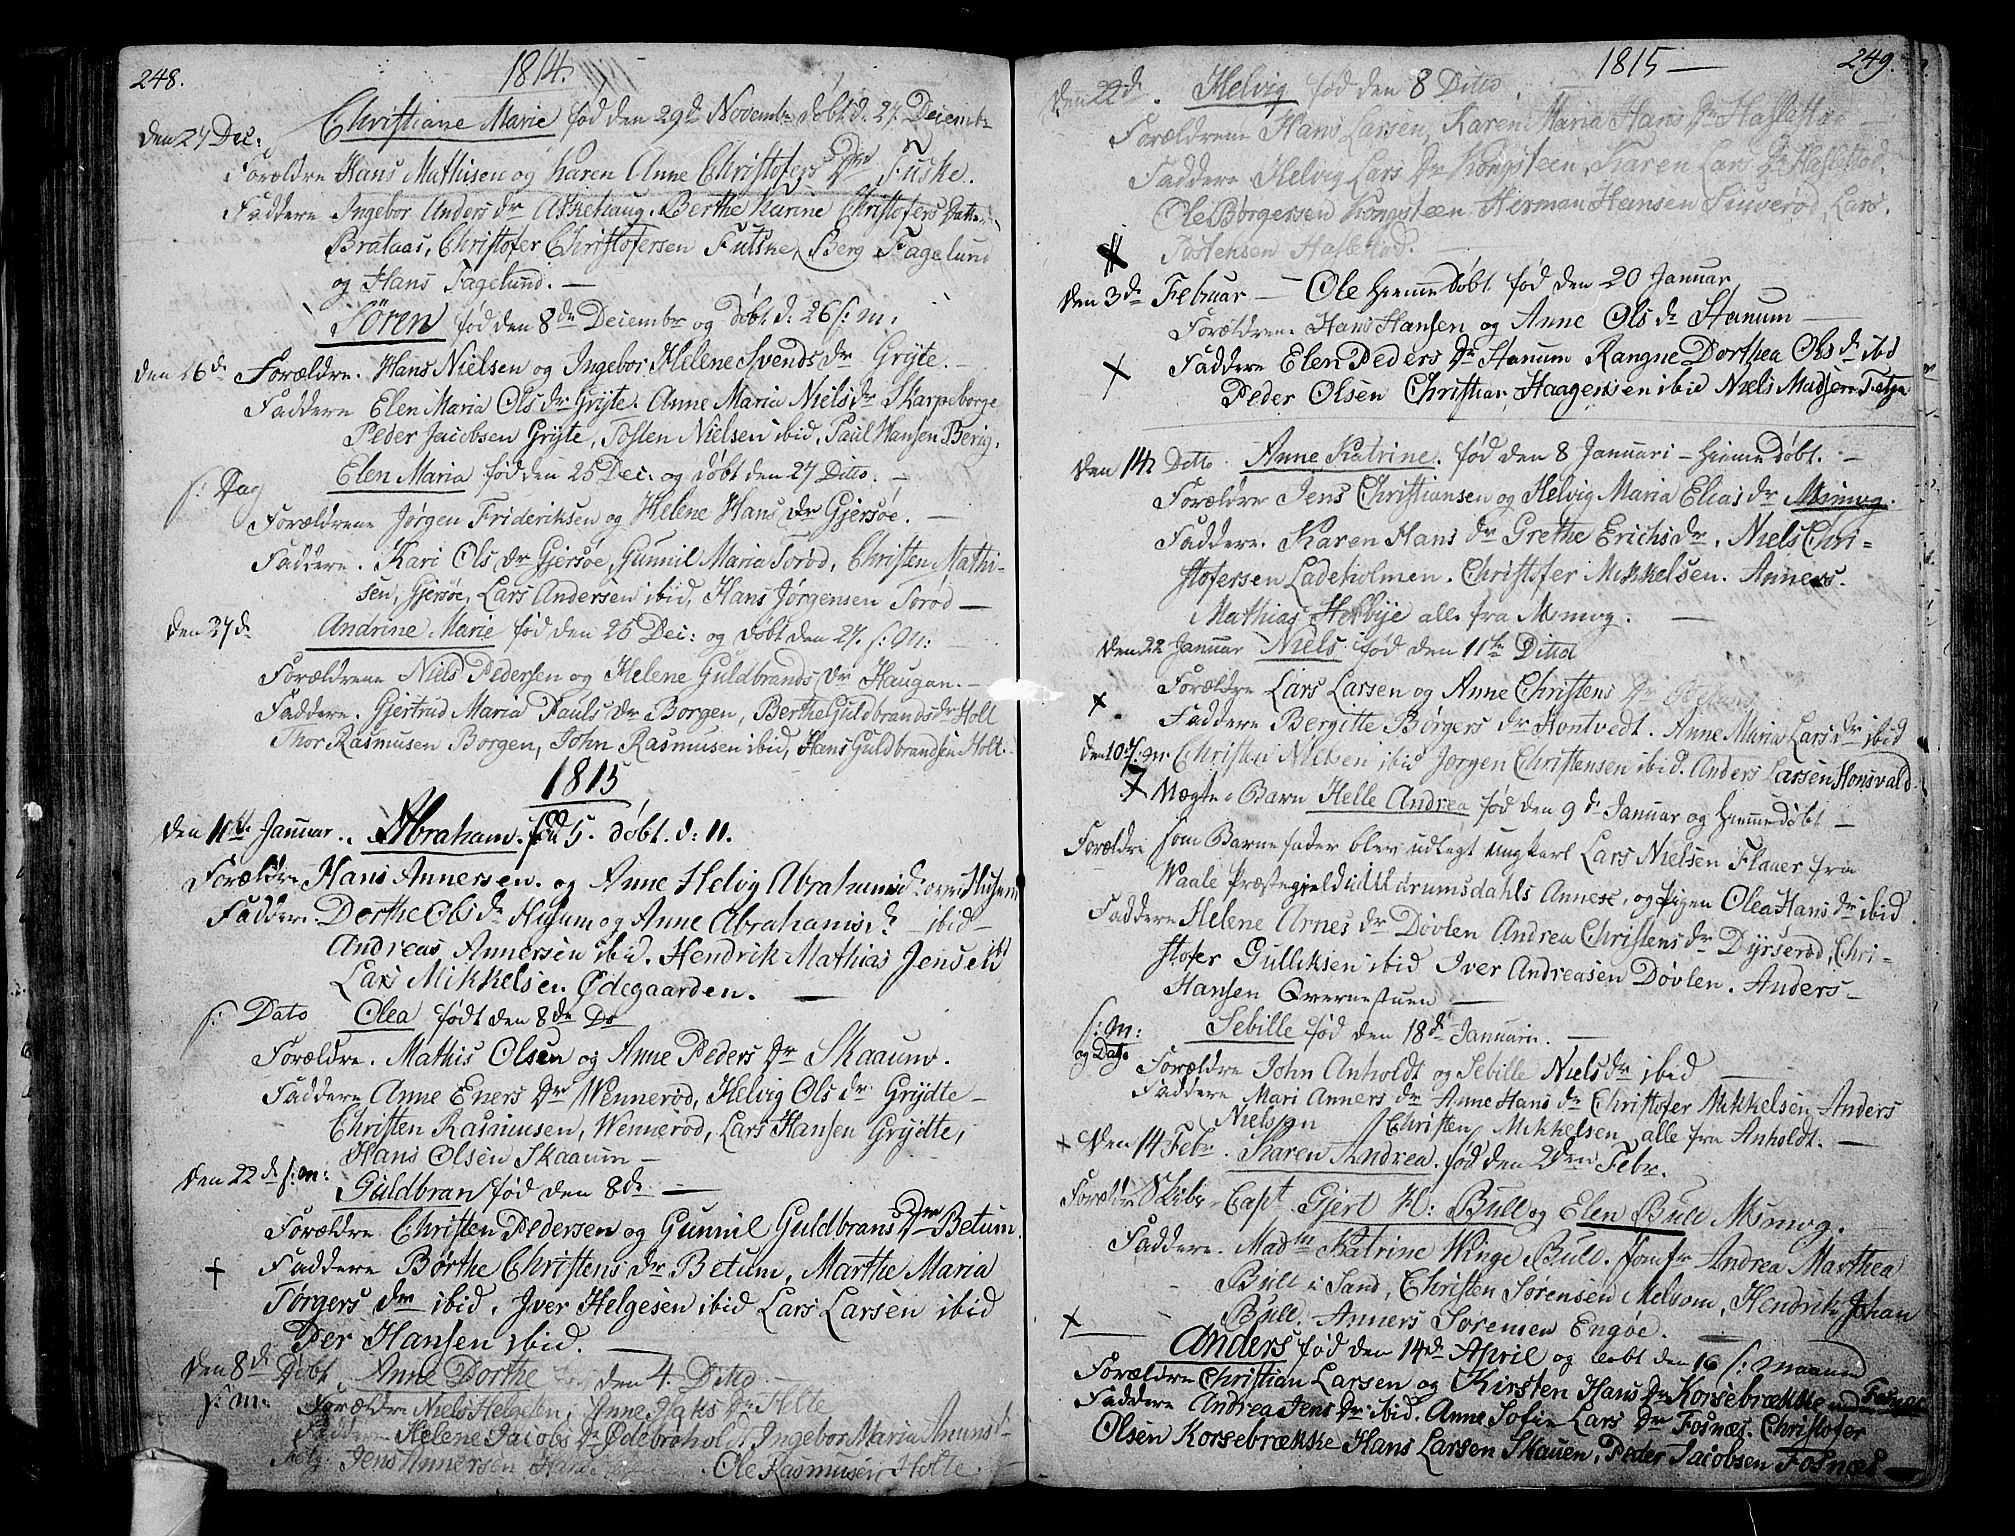 248.
1814.
den 27 Dec: Christiane Marie fød den 29de Novembr døbt d. 27 Decembr
Forældre Hans Mathisen og Karen Anne Christofers Dr Fuske.
Faddere Ingebor Anders dr Askehaug. Berthe Karine Christofers Datter
Brataas, Christofer Christofersen Futske, Berg Fagelund
og Hans Fagelund. —
Sören fød den 8de Decembr og døbt d. 26 s: m:
den 26de Forældre. Hans Nielsen og Ingebor Helene Svends dr Gryte. —
Faddere Elen Maria Ols dr Gryte. Anne Maria Niels dr Skarpeborge
Peder Jacobsen Gryte, Tosten Nielsen ibid, Paul Hansen Berig.
s: Dag Elen Maria fød den 25 Dec: og døbt den 27 Ditto. —
Forældrene Jørgen Frideriksen og Helene Hans dr Gjersøe. —
Faddere. Kari Ols dr Gjersøe, Gunnil Maria Torød, Christen Mathi-
sen, Gjersøe, Lars Andersen ibid, Hans Jørgensen Torød —
den 27de Andrine Marie fød den 25 Dec: og døbt den 27. s: m: —
Forældrene Niels Pedersen og Helene Guldbrands dr Haugan. —
Faddere. Gjertrud Maria Pauls dr Borgen, Berthe Guldbrands dr Holt
Thor Rasmusen Borgen, John Rasmusen ibid, Hans Guldbrandsen Holt. —
1815
den 11te Januar. Abraham. fød 5. døbt. d: 11.
Forældre Hans Annersen. og Anne Helvig Abrahamsd:
Faddere. Dorthe Ols dr Husum og Anne Abrahamsd: ibid —
Andreas Annersen ibid. Hendrik Mathias Jensen ibd
Lars Mikkelsen Ødegaarden. —
s: Dato Olea født den 8de Do
Forældre. Mathis Olsen og Anne Peders dr Skaaum.
Faddere Anne Eners Dr Wennerød, Helvig Ols dr Grydte —
Christen Rasmusen, Wennerød, Lars Hansen Grydte,
Hans Olsen Skaaum —
den 22de s: m: Guldbran fød den 8de —
Forældre Christen Pedersen og Gunnil Guldbrans Dr Betum.
+ Faddere Børthe Christens dr Betum, Marthe Maria
Törgers dr ibid. Iver Helgesen ibid Lars Larsen ibid
Per Hansen ibid. —
den 8de Döbt Anne Dorthe fød den 4. Ditto —
s: m: Forældre Niels Helgesen, Anne Dr Holte
Faddere Helene Jacobs Dr Ødebraholdt Ingebor Maria Amunds-
Jens Annersen Ole Rasmusen Holte. —
1815 —
249.
den 22d. Helvig fød den 8 Ditto.
Forældrene Hans Larsen, Karen Maria Hans Dr Haslestad —
Faddere Helvig Lars Dr Kongsteen, Karen Lars Dr Haslestad
Ole Børgersen Kongsteen. Herman Hansen Sinverød, Lars
Tostensen Haslestad. —
den 3de Februar — Ole hiemedøbt fød den 20 Januar
Forældrene Hans Hansen og Anne Ols dr Stanum —
+ Faddere Elen Peders dr Stanum Rangne Dorthea Ols dr ibd
Peder Olsen Christian Haagensen ibid Niels Madsen
den 14 Ditto Anne Katrine. fød den 8 Januari — hiemedøbt. —
Forældre Jens Christiansen og Helvig Maria Elias dr
Faddere. Karen Hans dr Grethe Erichs dr. Niels Chri=
stofersen Ladeholmen. Christofer Mikkelsen. Anners.
Mathias Hekbye alle fra —
den 22 Januar Niels fød den 11te Ditto
+ Forældre Lars Larsen og Anne Christens dr
Faddere Bergitte Børgers dr Hontvedt. Anne Maria Lars dr ibid
den 10 s: m Christen Nielsen ibid Jørgen Christensen ibid. Anders Larsen Honsvald
Uægte Barn Helle Andrea fød den 9d Januar og hiemedøbt —
Forældre som Barnefader blev udlagt ungkarl Lars Nielsen Flauer fra
Waale Præstegield Undrumsdahls Annex, og pigen Olea Hans dr ibid.
Faddere Helene Arnes dr Døvlen Andrea Christens dr Dyrserød, Chri-
stofer Gulliksen ibid Iver Andreasen Døvlen. Anders —
Hansen Qvernestuen —
s: m: og Dato. Sebille fød den 18de Januari. —
Forældre John Anholdt og Sebille Niels dr ibid —
Faddere Mari Anners dr Anne Hans dr Christofer Mikkelsen Anders
Nielsen Christen Mikkelsen alle fra Anholdt. —
+ Den 14 Febr. Karen Andrea. fød den 2den Febr.
Forældre Skibs Capt Gjert Kl: Bull og Elen Bull
Faddere. Madm Katrine Winge Bull. Jomfr Andrea Marthea
Bull i Sand, Christen Sørensen Melsom, Hendrik Johan
Bull. Anners Sørensen Engøe. —
+ Anders fød den 14de April og døbt den 16 s: maaned
Forældre Christian Larsen og Kirsten Hans Dr Korsebrække
Faddere Andrea Jens Dr ibid. Anne Sofie Lars Dr Fosnæs. Christofer
Olsen Korsebrække Hans Larsen Skauen, Peder Jacobsen Fosnæs —